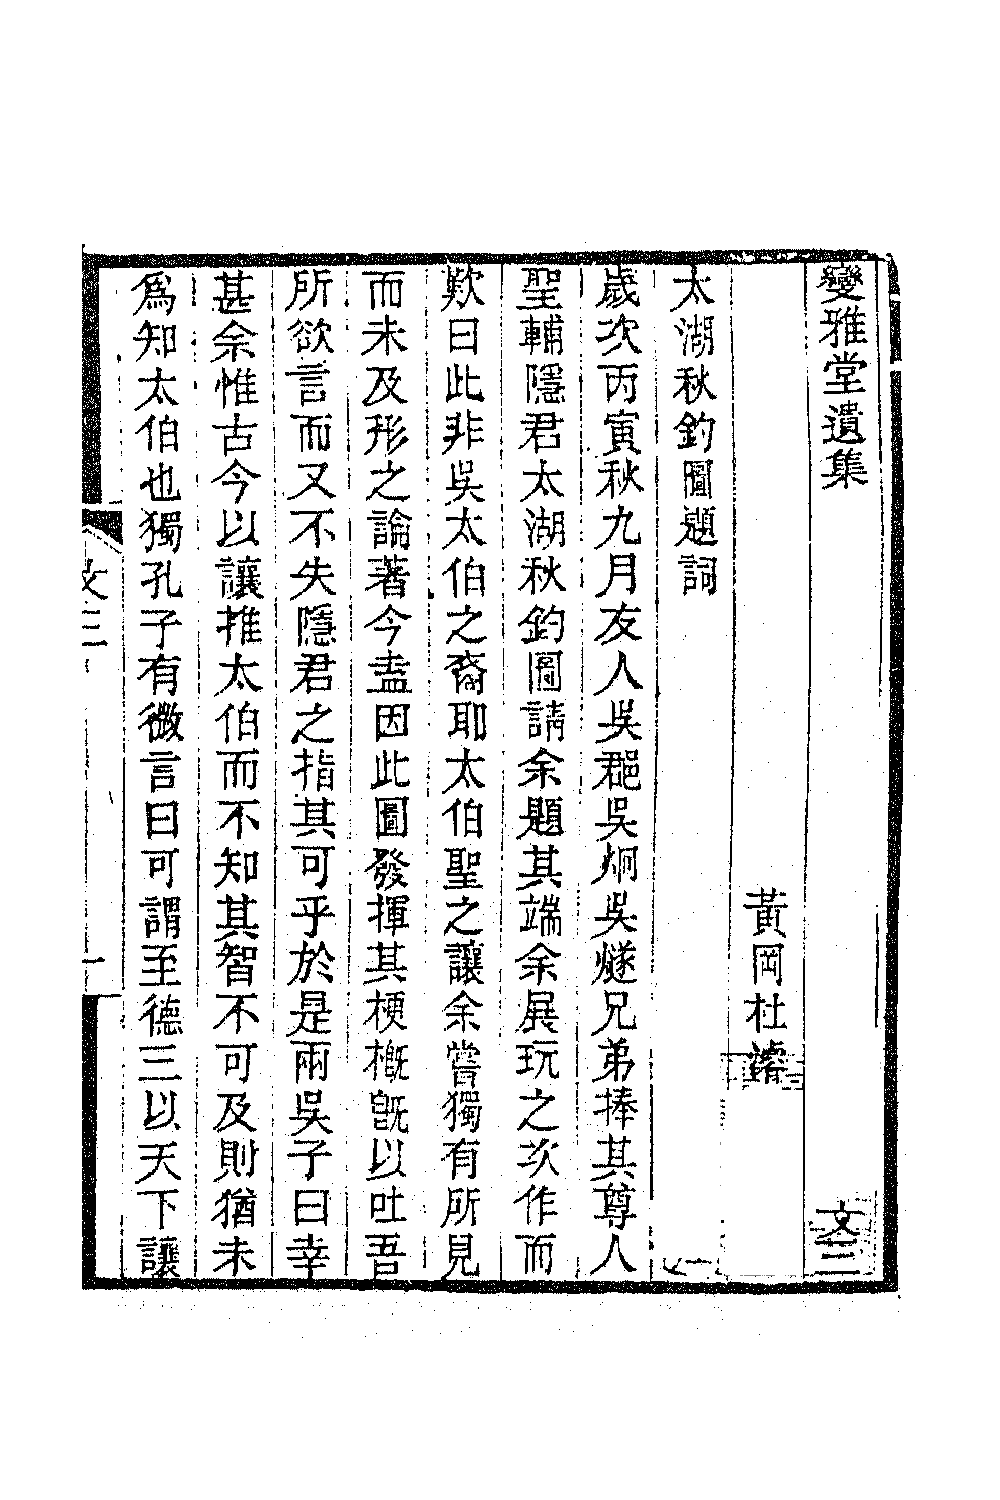 變雅堂遺集 文三
黃岡杜濬
太湖秋釣圖題詞
歲次丙寅秋九月友人吳郡吳炯吳燧兄弟捧其尊人
聖輔隱君太湖秋釣圖請余題其端余展玩之次作而
歎曰此非吳太伯之裔耶太伯聖之讓余嘗獨有所見
而未及形之論著今盍因此圖發揮其梗槪旣以吐吾
所欲言而又不失隱君之指其可乎於是兩吳子曰幸
甚余惟古今以讓推太伯而不知其智不可及則猶未
爲知太伯也獨孔子有微言曰可謂至德三以天下讓
文三
一